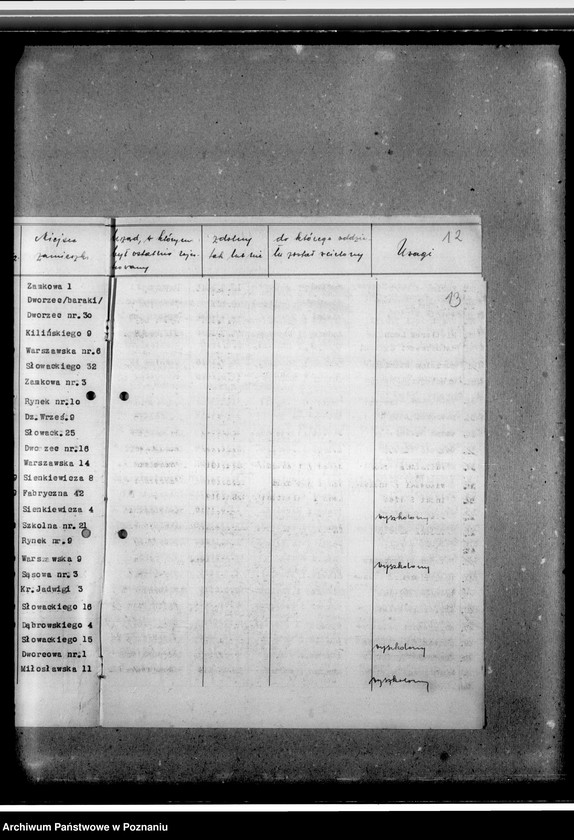 Miejsce
zamieszk.
Urząd, w którym
był ostatnio reje-
strowany
zdolny
tak lub nie
do którego oddzia-
łu został wcielony
Uwagi
12
13
Zamkowa 1
Dworzec/baraki/
Dworzec nr.3o
Kilińskiego 9
Warszawska nr.6
Słowackiego 32
Zamkowa nr.3
Rynek nr.1o
Dz.Wrześ.9
Słowack.25
Dworzec nr.16
Warszawska 14
Sienkiewicza 8
Fabryczna 42
Sienkiewicza 4
wyszkolony
Szkolna nr.21
Rynek nr.9
Warszawska 9
wyszkolony
Sąsowa nr.3
Kr.Jadwigi 3
Słowackiego 16
Dąbrowskiego 4
Słowackiego 15
wyszkolony
Dworcowa nr.1
Miłosławska 11
wyszkolony
Archiwum Państwowe w Poznaniu